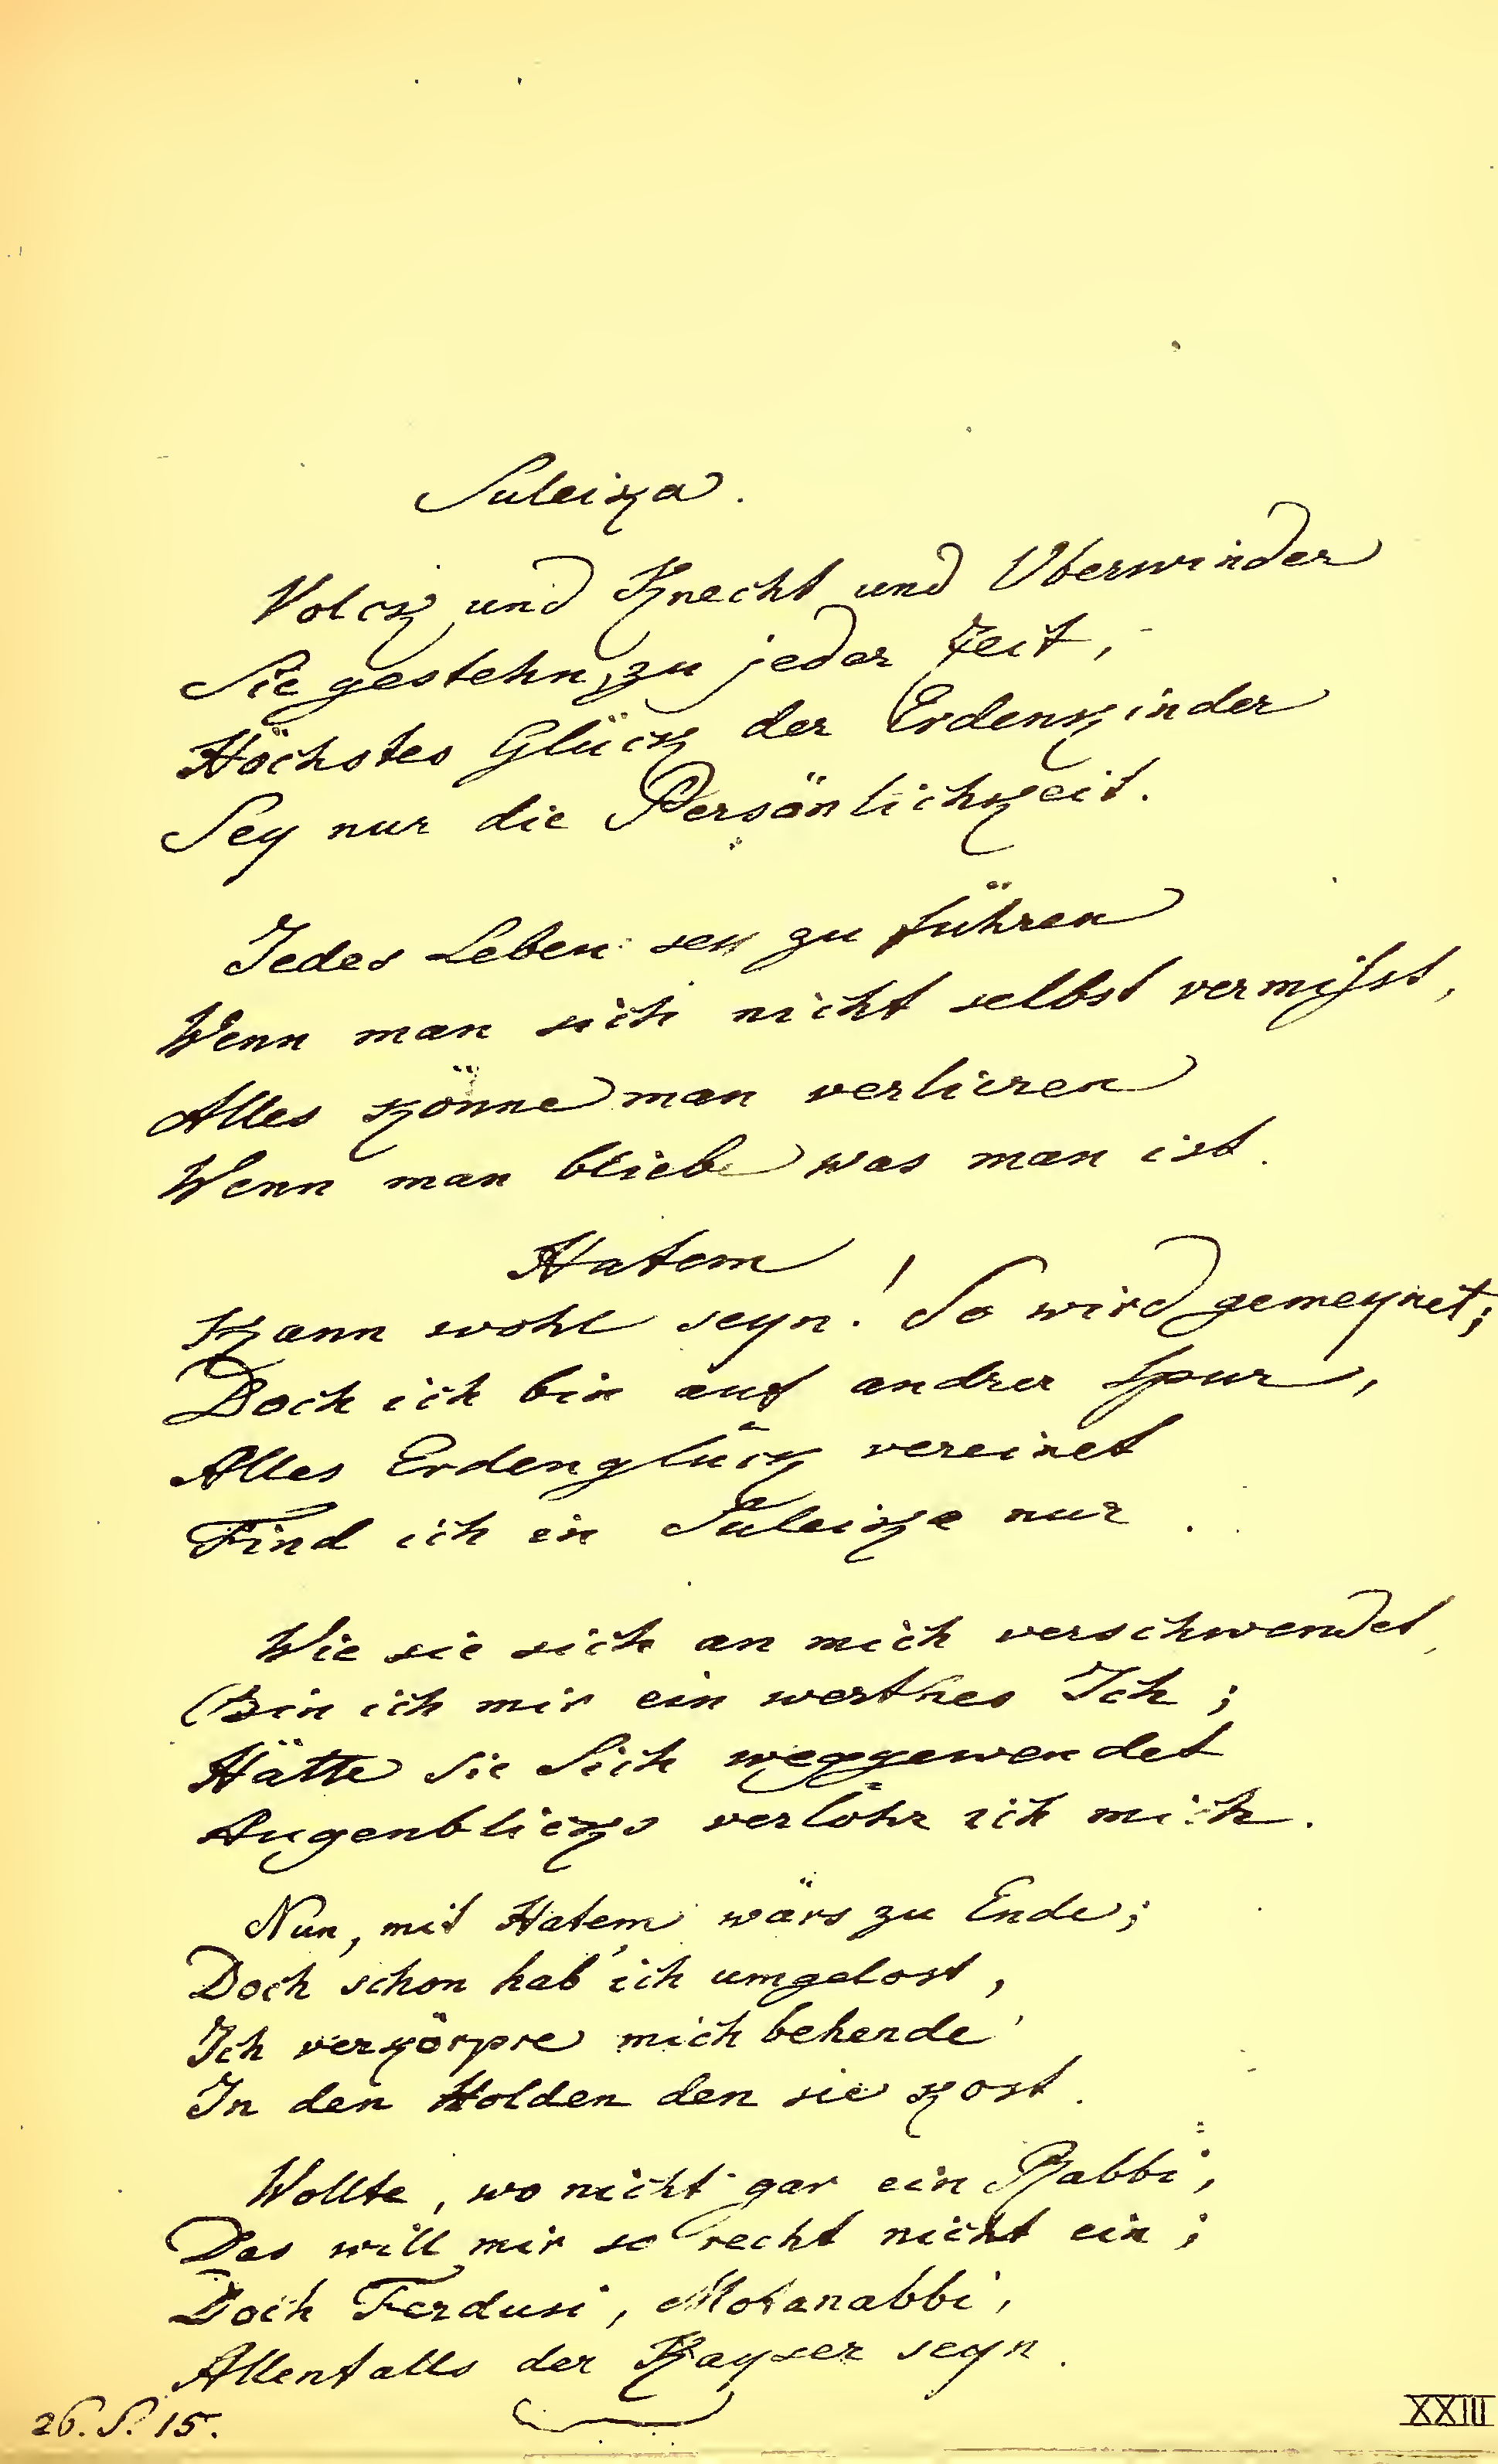 Suleika.
Volck und Knecht und Uberwinder
Sie gestehn, zu jeder Zeit,
Höchstes Glück der Erdenkinder
Sey nur die Persönlichkeit.
Jedes Leben sey zu führen
Wenn man sich nicht selbst vermisst,
Alles könne man verlieren
Wenn man bliebe was man ist.
Hatem
Kann wohl seyn! So wird gemeynet;
Doch ich bin auf andrer Spur,
Alles Erdenglück vereinet
Find ich in Suleika nur.
Wie sie sich an mich verschwendet,
Bin ich mir ein werthes Ich;
Hätte sie sich weggewendet
Augenblicks verlöhr ich mich.
Nun, mit Hatem wärs zu Ende;
Doch schon hab' ich umgelost,
Ich verkörpre mich behende
In den Holden den sie kost.
Wollte, wo nicht gar ein Rabbi,
Das will mir so recht nicht ein;
Doch Ferdusi, Motanabbi,
Allenfalls der Kayser seyn.
26. S. 15.
XXIII